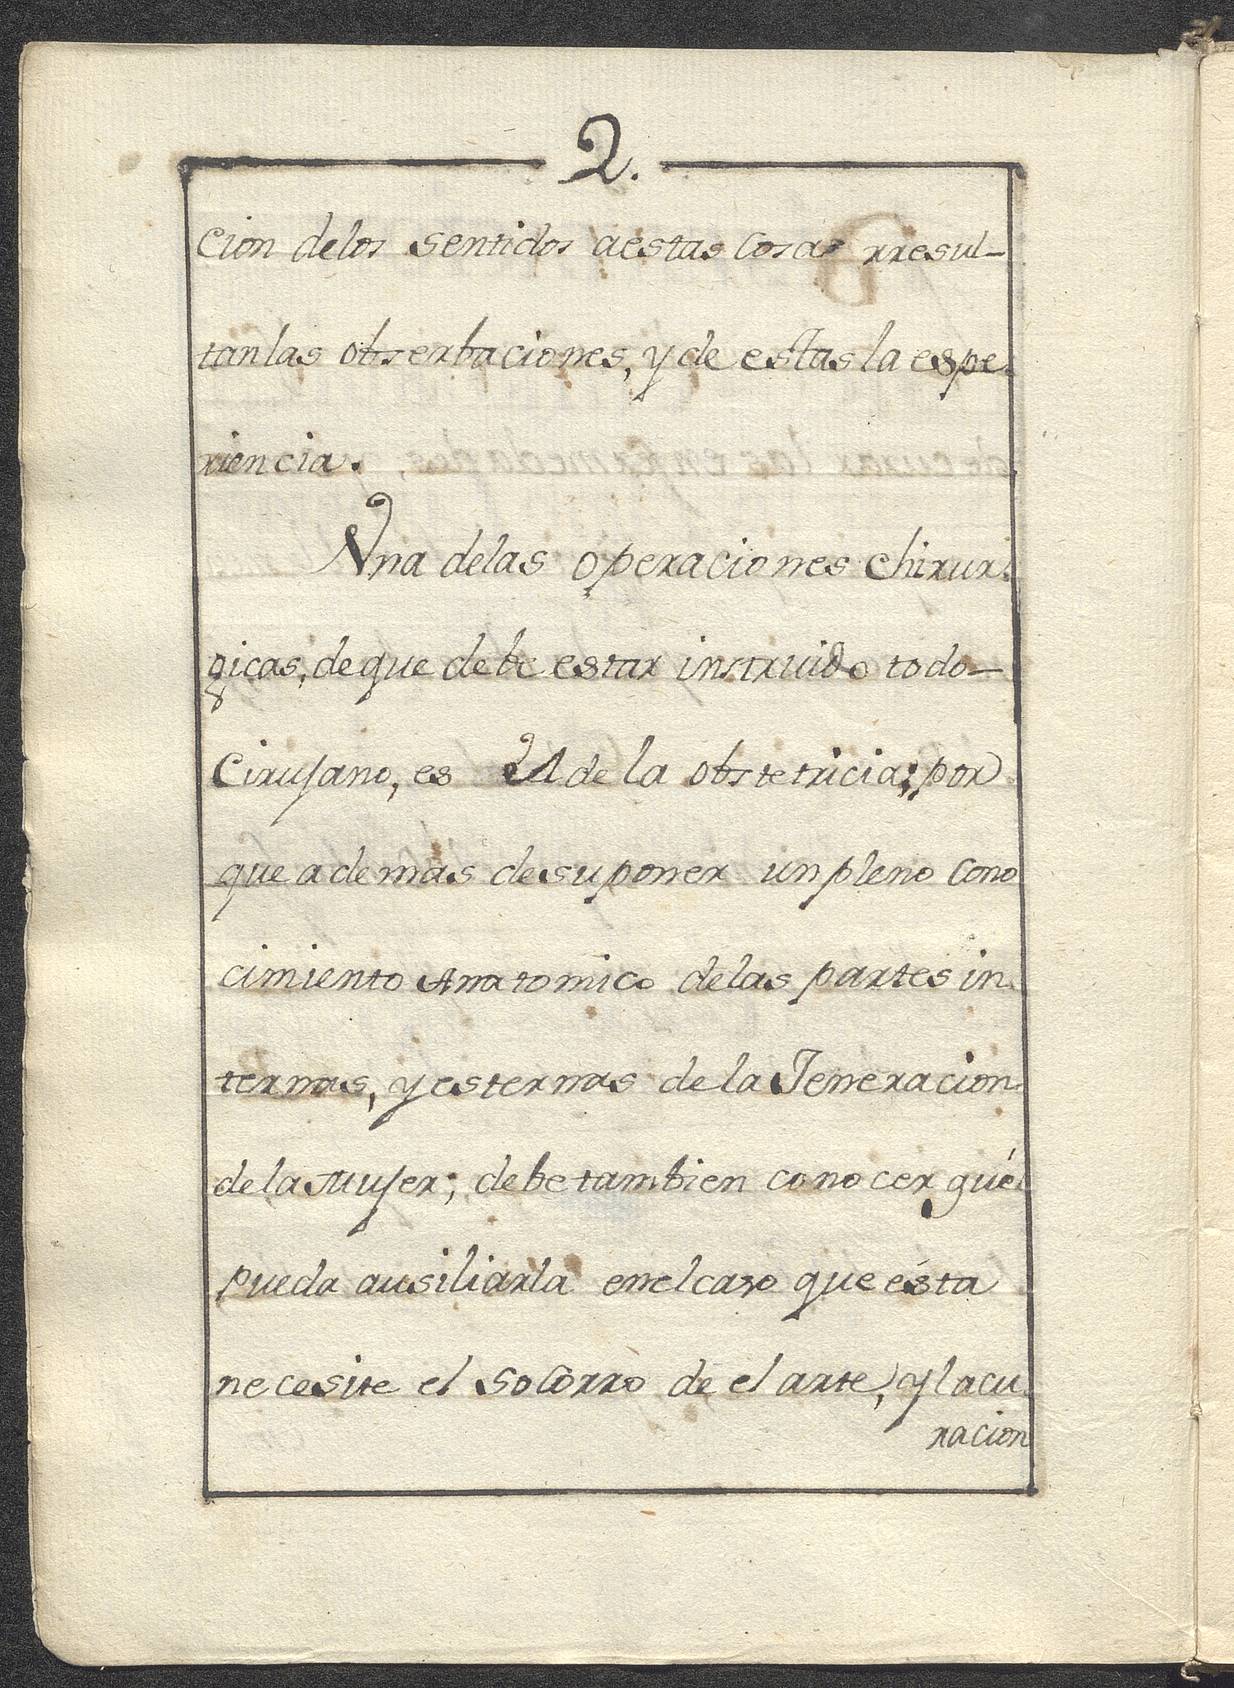 2.
cion delos sentidos aestas cosas rresul-
tanlas obserbaciones, y de estas la espe.
riencia.
Vna delas operaciones chirur.
gicas, de que debe estar instruido todo-
Cirujano, es A de la obstetricia; por
que ademas de suponer un pleno cono
cimiento Anatomico delas partes in.
ternas, y esternas de la Jeneracion
de la Mujer; debe tambien conocer qué
pueda ausiliarla enelcaso que ésta
necesite el socorro de el arte, y lacu.
racion